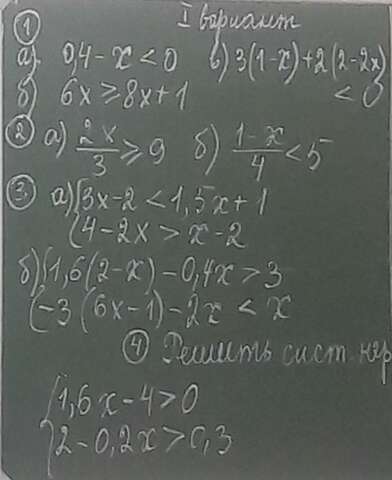 I вариант
① а) 0,4 - x < 0 в) 3(1-x) + 2(2-2x) < 0
б) 6x ≥ 8x + 1
② а) 2x/3 ≥ 9 б) 1-x/4 < 5
③ а) { 3x - 2 < 1,5x + 1
{ 4 - 2x > x - 2
б) { 1,6(2-x) - 0,4x > 3
{ -3(6x-1) - 2x < x
④ Решить сист. нер
{ 1,6x - 4 > 0
{ 2 - 0,2x > 0,3